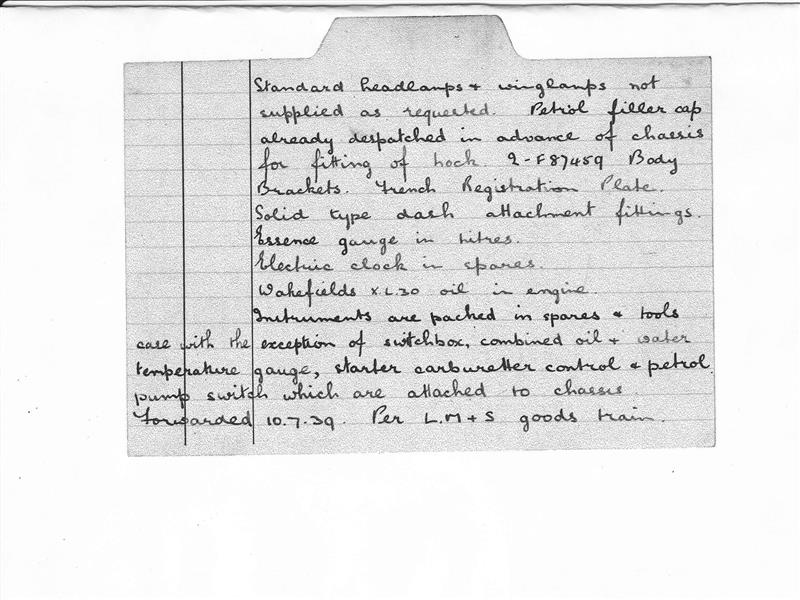 Standard headlamps + winglamps not
supplied as requested. Petrol filler cap
already despatched in advance of chassis
for fitting of lock. 2-F87459 Body
Brackets. French Registration Plate.
Solid type dash attachment fittings.
Essence gauge in litres.
Electric clock in spares.
Wakefields X.L.30 oil in engine.
Instruments are packed in spares + tools
case with the exception of switchbox, combined oil + water
temperature gauge, starter carburetter control + petrol
pump switch which are attached to chassis
Forwarded 10.7.39. Per L.M+S goods train.